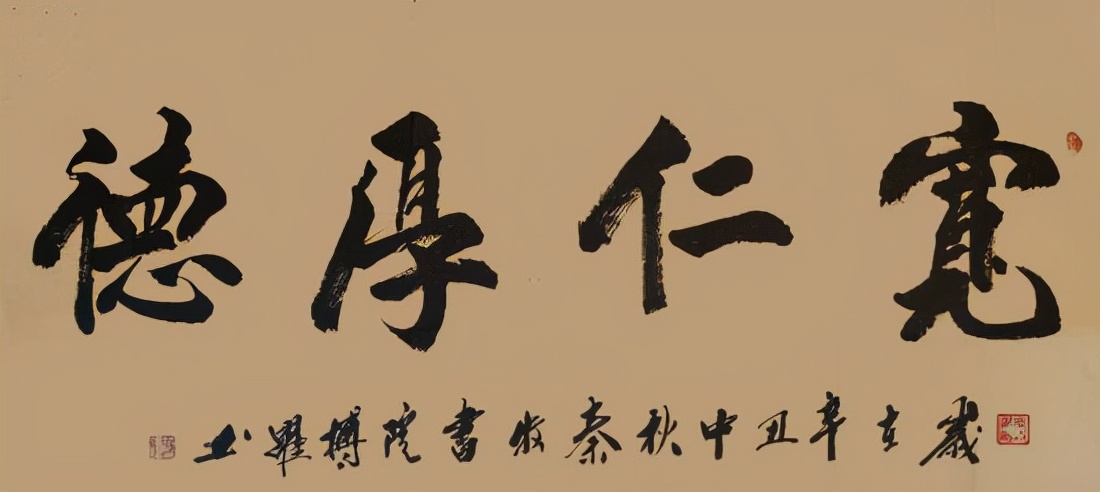 寬仁厚德
歲在辛丑中秋秦牧書院博